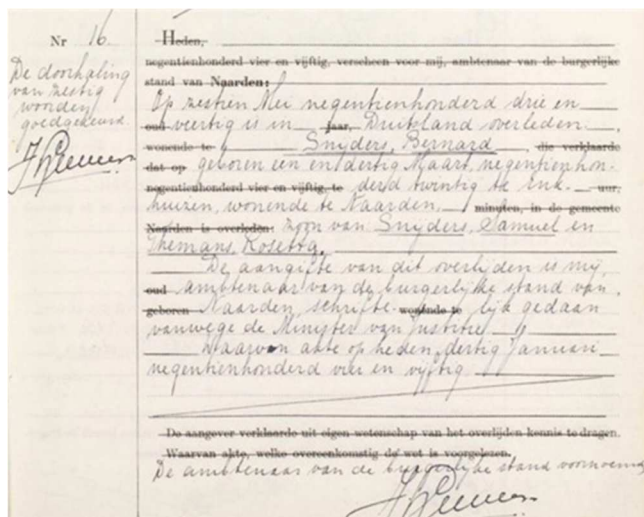 Nr 16.
De doorhaling
van zestig
woorden
goedgekeurd.
Heden,
negentienhonderd vier en vijftig, verscheen voor mij, ambtenaar van de burgerlijke
stand van Naarden:
Op zestien Mei negentienhonderd drie en
oud veertig is in jaar, Duitsland overleden
wonende te Snyders, Bernard, die verklaarde
dat op geboren een en dertig Maart, negentienhon-
negentienhonderd vier en vijftig, te derd twintig te Enk- uur,
huizen, wonende te Naarden, minuten, in de gemeente
Naarden is overleden: zoon van Snyders, Samuel en
Themans, Rosetta.
De aangifte van dit overlijden is mij,
oud ambtenaar van de burgerlijke stand van
geboren Naarden, schrifte- wonende te lijk gedaan
vanwege de Minister van Justitie
Waarvan akte op heden, dertig Januari
negentienhonderd vier en vijftig
De aangever verklaarde uit eigen wetenschap van het overlijden kennis te dragen.
Waarvan akte, welke overeenkomstig de wet is voorgelezen.
De ambtenaar van de burgerlijke stand voornoemd